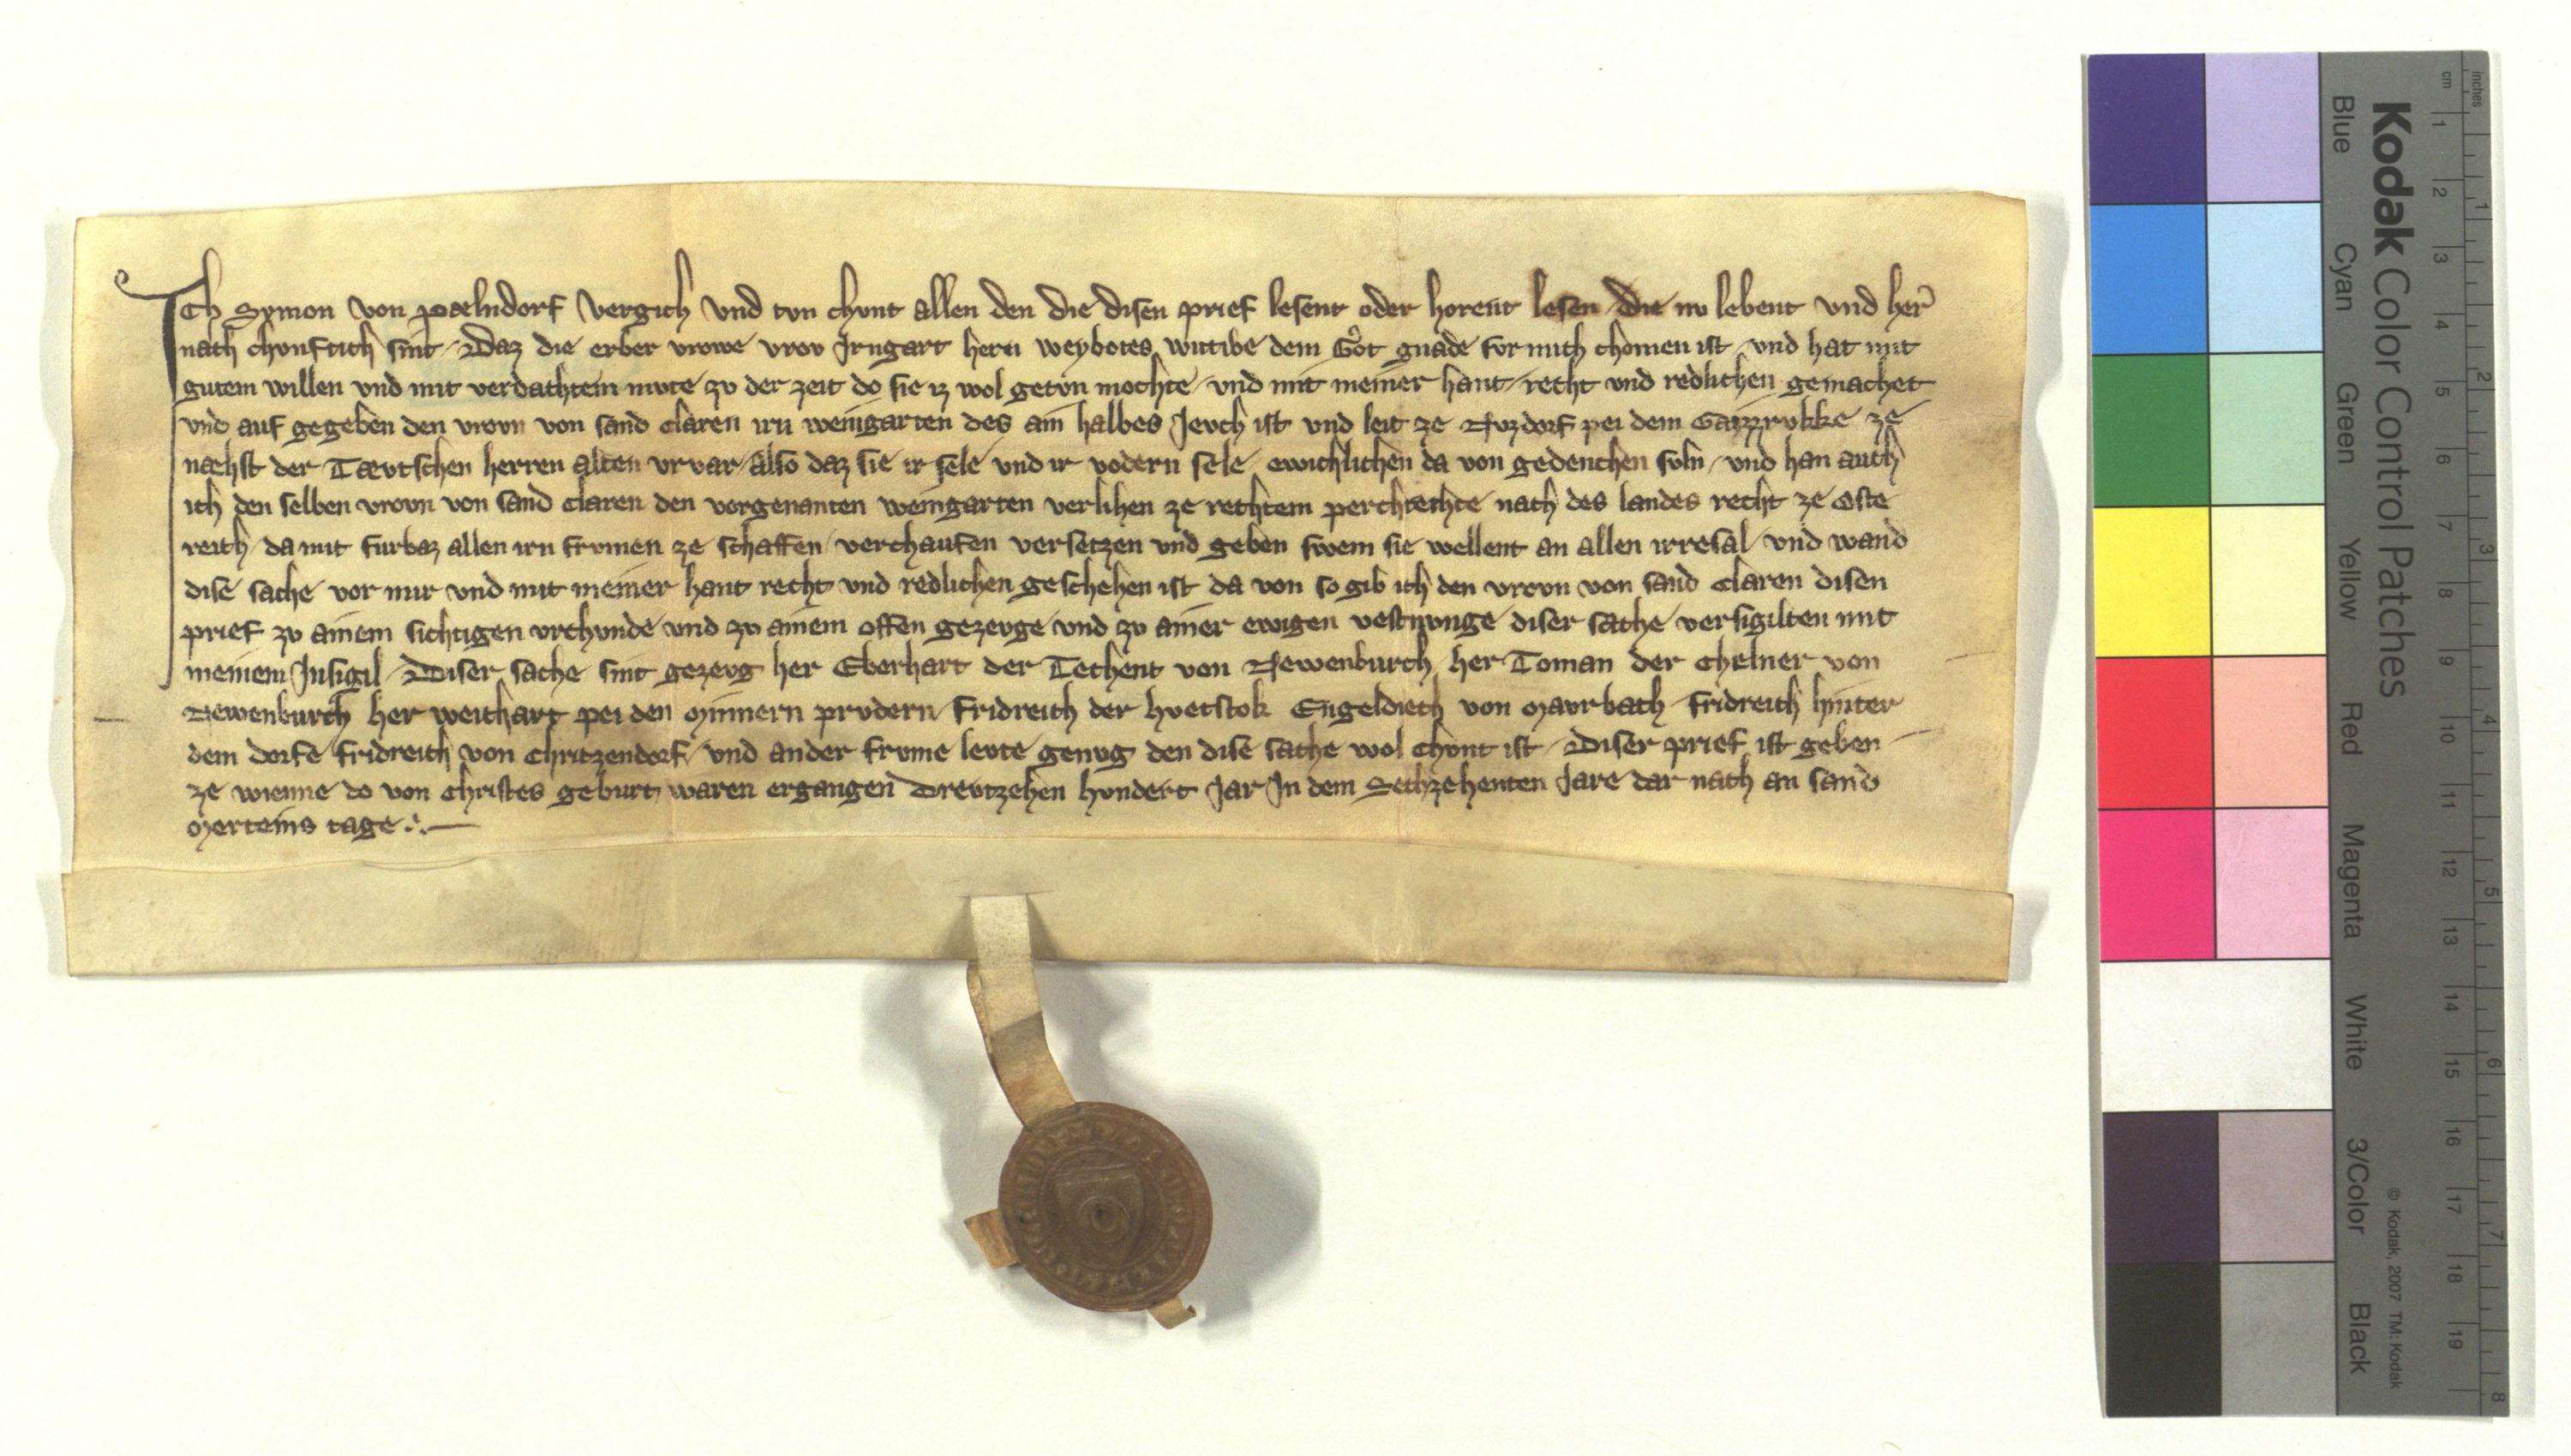 Ich Symon von Pælndorf vergich und tvn chvnt allen den die disen prief lesent oder horent lesen die nv lebent und her
nach chvnftich sint Daz die erber vrowe vrov Irngart hern Weybotes wittibe dem Got gnade for mich chomen ist und hat mit
gutem willen und mit verdachtem mvte zv der zeit do sie iz wol getvn mochte und mit meiner hant recht und redlichen gemachet
und auf gegeben den vrovn von sand Claren irn weingarten des ain halbes Jevch ist und leit ze Nvzdorf pei dem Gaizrvkke ze
næhst der Tævtschen herren alten vrvar also daz sie ir sele und ir vodern sele ewichlichen da von gedenchen svln und han auch
ich den selben vrovn von sand Claren den vorgenanten weingarten verlihen ze rechtem perchrechte nach des landes recht ze Oste
reich da mit furbaz allen irn frvmen ze schaffen verchaufen versetzen und geben swem sie wellent an allen irresal und wand
dise sache vor mir und mit meiner hant recht und redlichen geschehen ist da von so gib ich den vrovn von sand Claren disen
prief zv ainem sichtigen vrchvnde und zv ainem offen gezevge und zv ainer ewigen vestnvnge diser sache versigilten mit
meinem Insigil Diser sache sint gezevg her Eberhart der Techent von Newenburch her Toman der Chelner von
Newenburch her Weichart pei den Minnern prvdern Fridreich der Hvetstok Engeldiech von Mavrbach Fridreich hinter
dem dorfe Fridreich von Chritzendorf und ander frvme levte genvg den dise sache wol chvnt ist Diser prief ist geben
ze wienne do von Christes geburt waren ergangen Drevtzehen hvndert Jar In dem Sechzehenten Jare dar nach an sand
Merteins tage
Kodak Color Control Patches
© Kodak, 2007 TM: Kodak
Blue Cyan Green Yellow Red Magenta White 3/Color Black
inches 1 2 3 4 5 6 7 8
cm 1 2 3 4 5 6 7 8 9 10 11 12 13 14 15 16 17 18 19